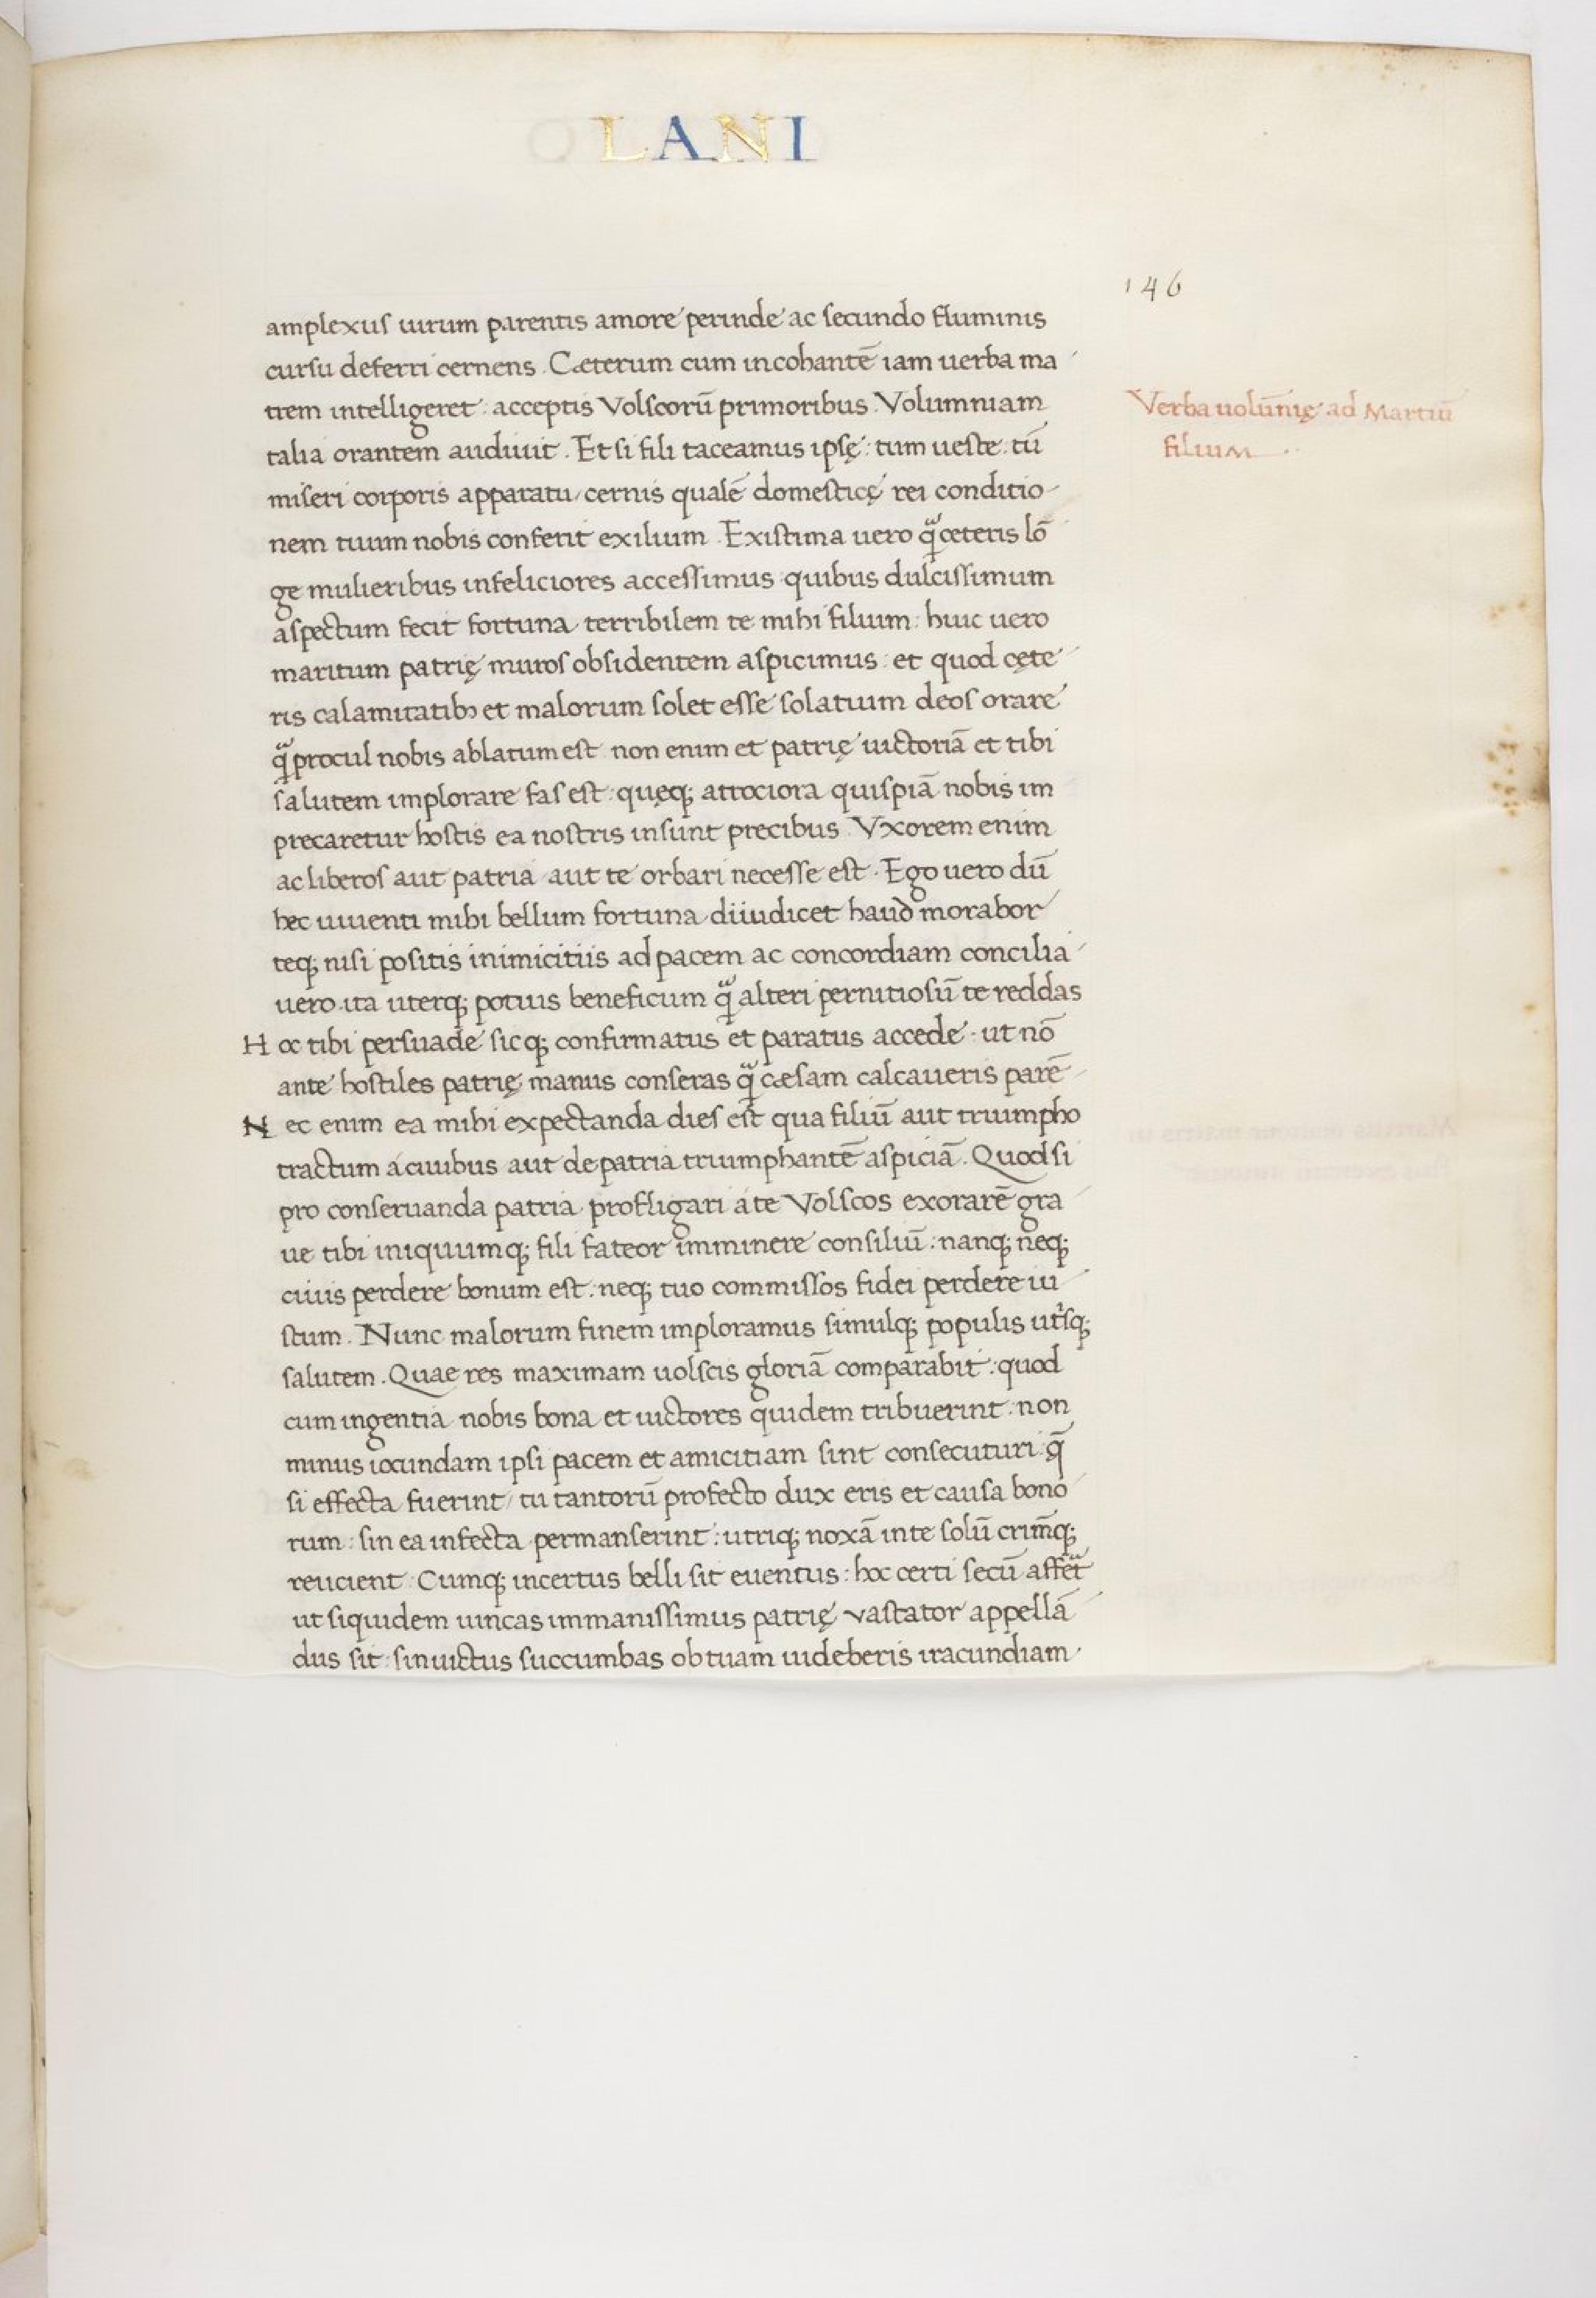 LANI
146
amplexus uirum parentis amore perinde ac secundo fluminis
cursu deferri cernens. Cæterum cum incohantē iam uerba ma
trem intelligeret: acceptis Volscorū primoribus. Volumniam
talia orantem audiuit. Et si fili taceamus ipsę: tum ueste: tū
miseri corporis apparatu, cernis qualē domesticę rei conditio
nem tuum nobis conferit exilium. Existima uero q̃ ceteris lō
ge mulieribus infeliciores accessimus quibus dulcissimum
aspectum fecit fortuna, terribilem te mihi filium: huic uero
maritum patrię muros obsidentem aspicimus: et quod cęte
ris calamitatibꝫ et malorum solet esse solatium deos orare
q̃ procul nobis ablatum est non enim et patrię uictoriā et tibi
salutem implorare fas est: quęq; attociora quispiā nobis im
precaretur hostis ea nostris insunt precibus. Vxorem enim
ac liberos aut patria aut te orbari necesse est. Ego uero dū
hec uiuenti mihi bellum fortuna diiudicet haud morabor
teq; nisi positis inimicitiis ad pacem ac concordiam concilia
uero ita uterq; potius beneficum q̃ alteri pernitiosū te reddas
Hoc tibi persuade sicq; confirmatus et paratus accede: ut nō
ante hostiles patrię manus conseras q̃ cæsam calcaueris parē
Nec enim ea mihi expectanda dies est qua filiū aut triumpho
tractum a ciuibus aut de patria triumphantē aspiciā. Quod si
pro conseruanda patria profligari a te Volscos exorarē gra
ue tibi iniquumq; fili fateor imminere consiliū: nanq; neq;
ciuis perdere bonum est: neq; tuo commissos fidei perdere iu
stum. Nunc malorum finem imploramus simulq; populis utrisq;
salutem. Quae res maximam uolscis gloriā comparabit: quod
cum ingentia nobis bona et uictores quidem tribuerint non
minus iocundam ipsi pacem et amicitiam sint consecuturi: q̄
si effecta fuerint, tu tantorū profecto dux eris et causa bono
rum: sin ea infecta permanserint: utriq; noxā in te solū crimēq;
reiicient. Cumq; incertus belli sit euentus: hoc certi secū affert
ut siquidem uincas immanissimus patrię vastator appellā
dus sit: sin uictus succumbas ob tuam uideberis iracundiam
Verba uolūnię ad Martiū
filium